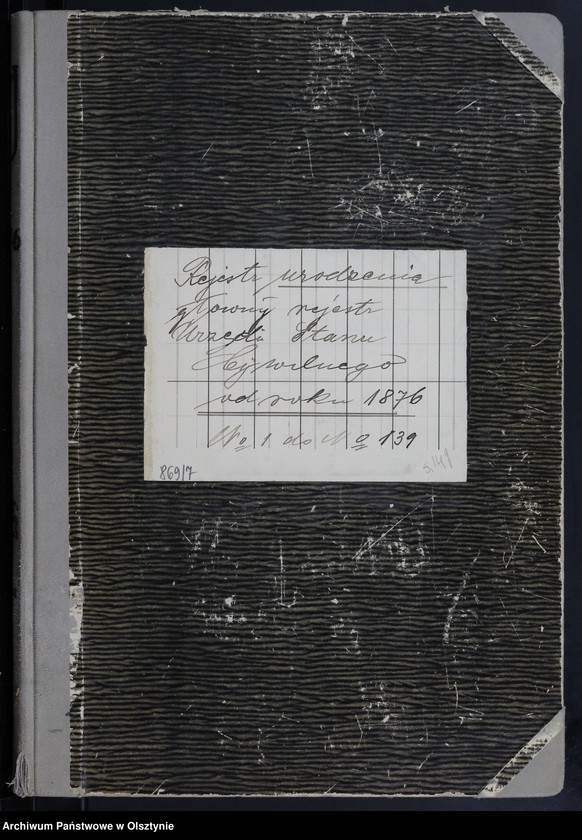 Rejestr urodzenia
główny rejestr
Urzędu Stanu
Cywilnego
od roku 1876
No 1 do No 139
869/7
s.141
6
Archiwum Państwowe w Olsztynie